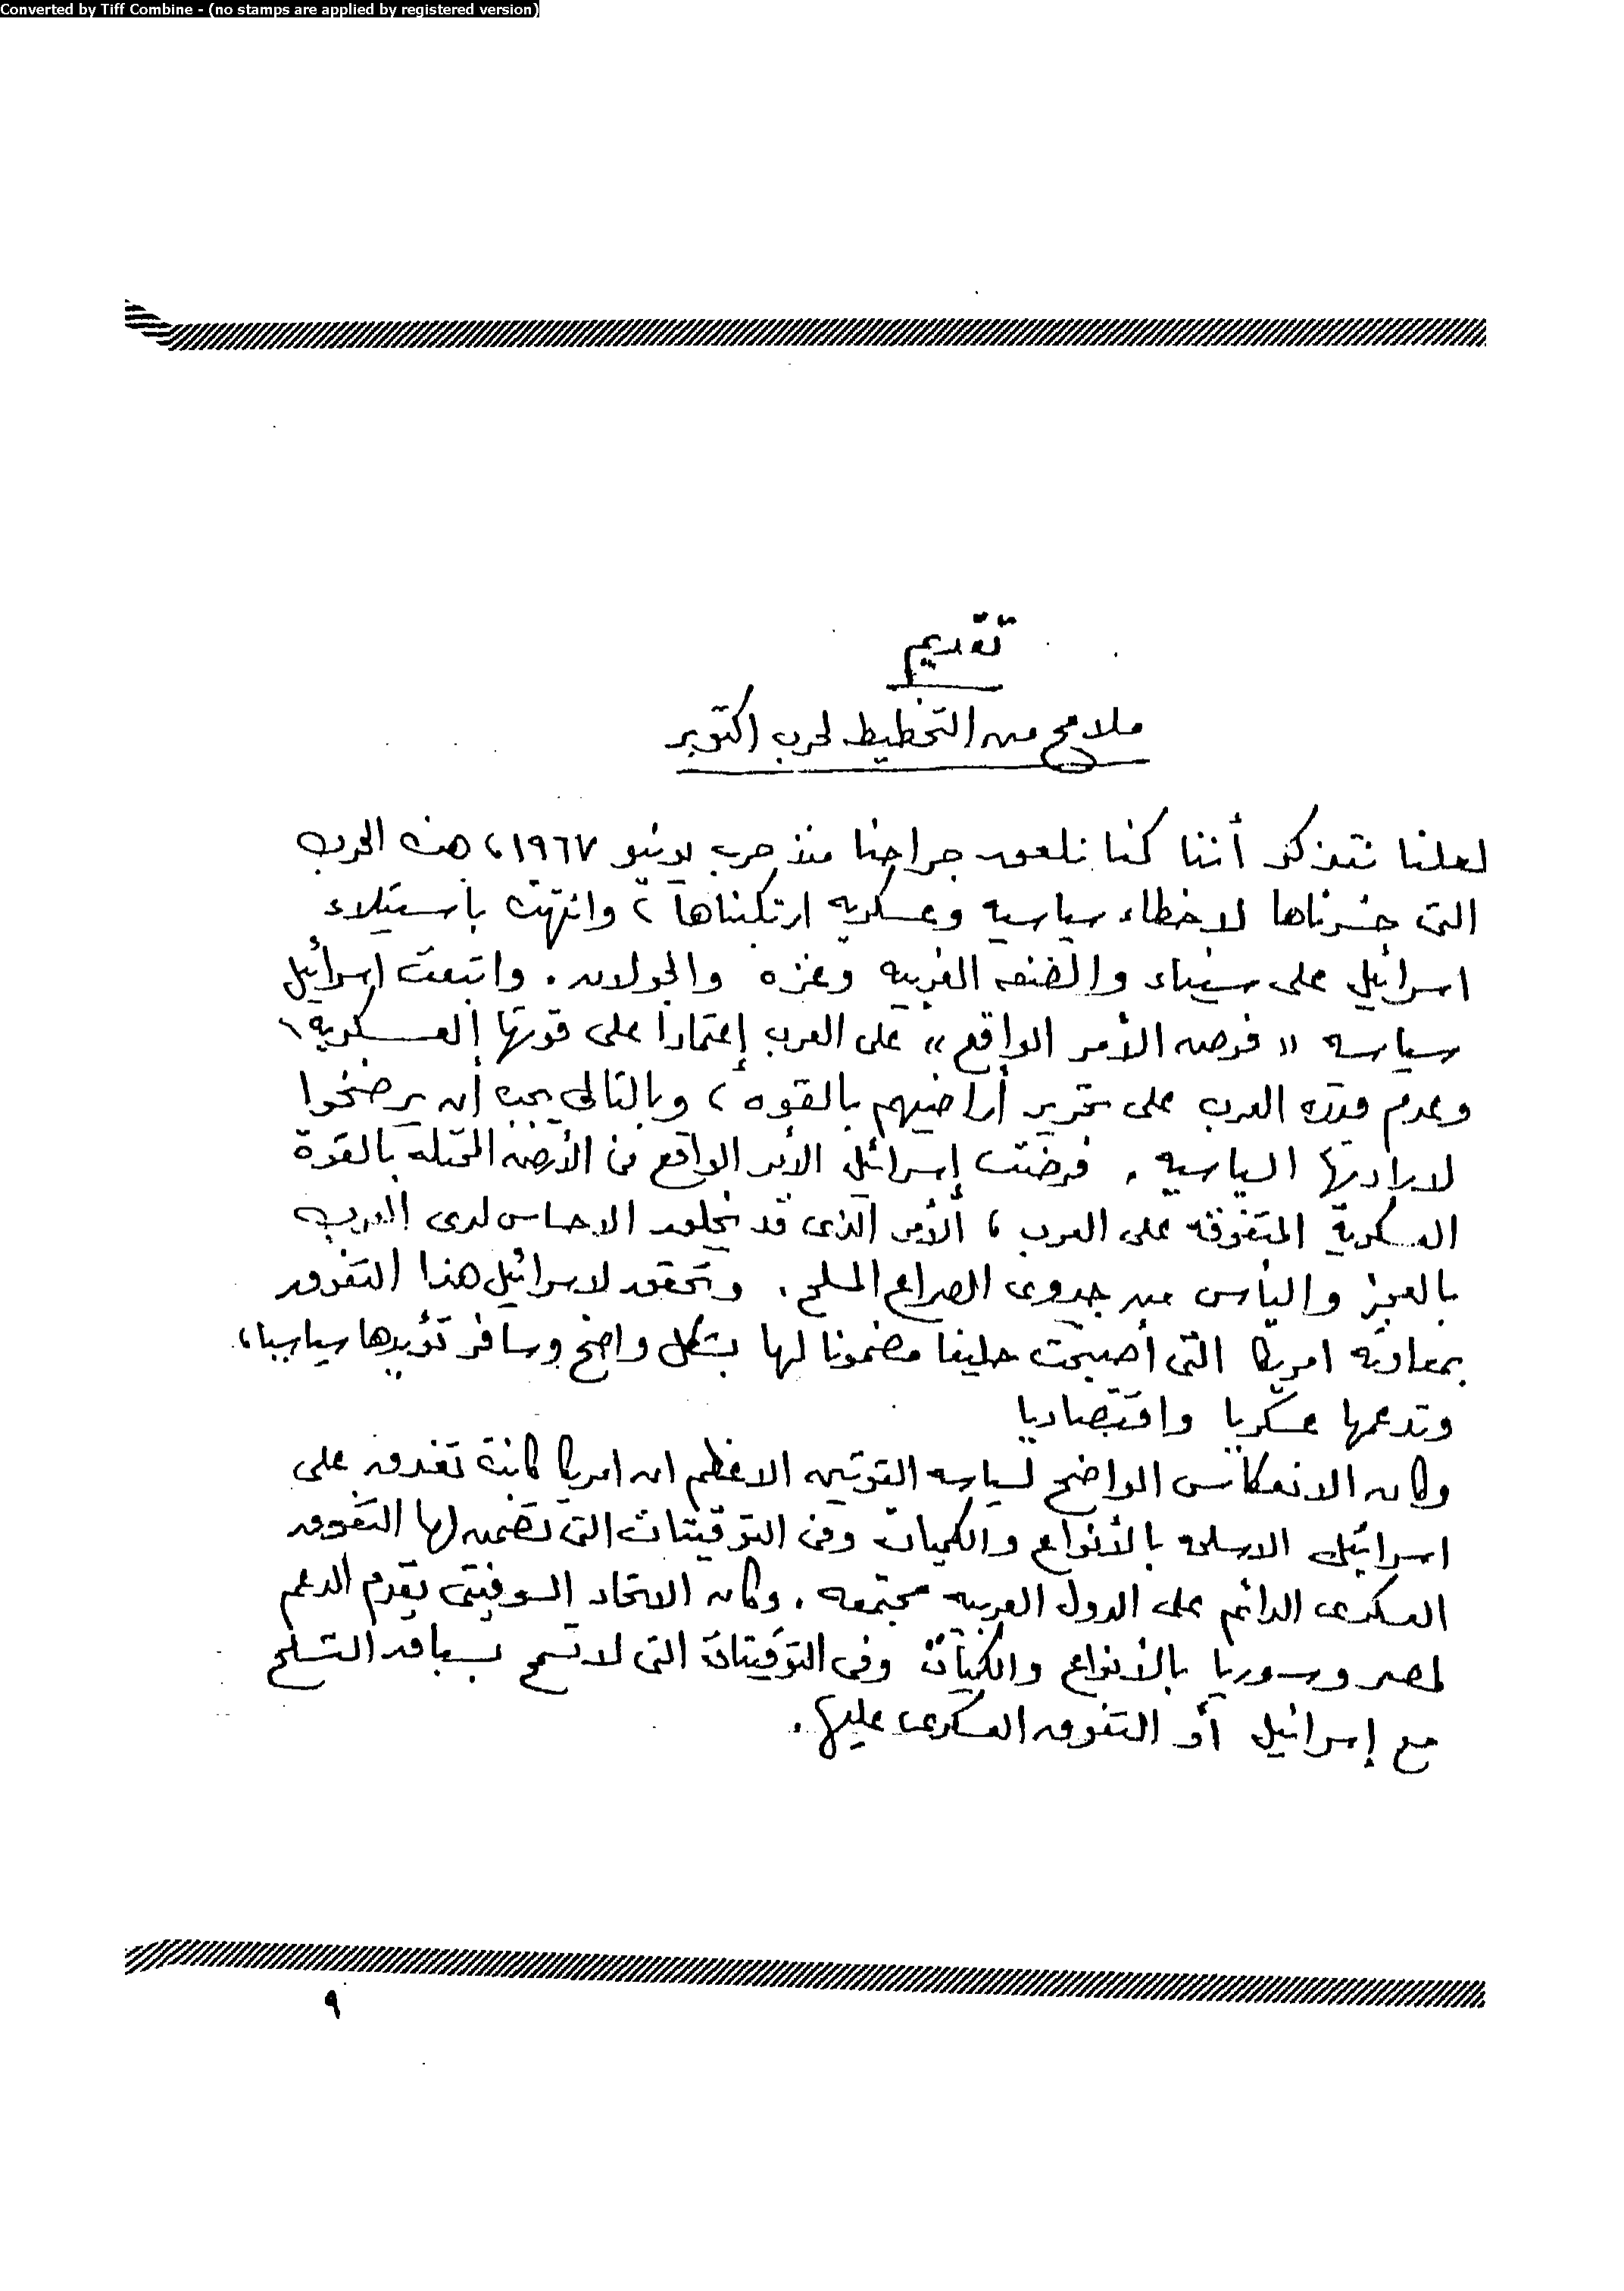 Converted by Tiff Combine - (no stamps are applied by registered version)
تقديم
ملامح من التخطيط لحرب اكتوبر
لعلنا نتذكر أننا كنا نلعق جراحنا منذ حرب يونيو ١٩٦٧، هذه الحرب
التى خسرناها لاخطاء سياسيه وعسكريه ارتكبناها، وانتهت باستيلاء
اسرائيل على سيناء والضفه الغربيه وغزه والجولان. واتبعت اسرائيل
سياسه «فرض الأمر الواقع» على العرب إعتمادا على قوتها العسكريه،
وعدم قدره العرب على تحرير أراضيهم بالقوه، وبالتالى يجب أن يرضخوا
لارادتها السياسيه. فرضت إسرائيل الأمر الواقع فى الأرض المحتله بالقوة
العسكرية المتفوقه على العرب، الأمر الذى قد يخلق الاحساس لدى العرب
بالعجز واليأس من جدوى الصراع المسلح. وتحقق لاسرائيل هذا التفوق
بمعاونه امريكا التى أصبحت حليفا مضمونا لها بشكل واضح وسافر تؤيدها سياسيا،
وتدعمها عسكريا واقتصاديا
وكان الانعكاس الواضح لسياسه القوتين الاعظم ان امريكا كانت تغدق على
اسرائيل الاسلحه بالأنواع والكميات وفى التوقيتات التى تضمن لها التفوق
العسكرى الدائم على الدول العربيه مجتمعه. وكان الاتحاد السوفيتى يقدم الدعم
لمصر وسوريا بالأنواع والكميات وفى التوقيتات التى لا تسمح بسباق التسلح
مع إسرائيل أو التفوق العسكرى عليها.
٩